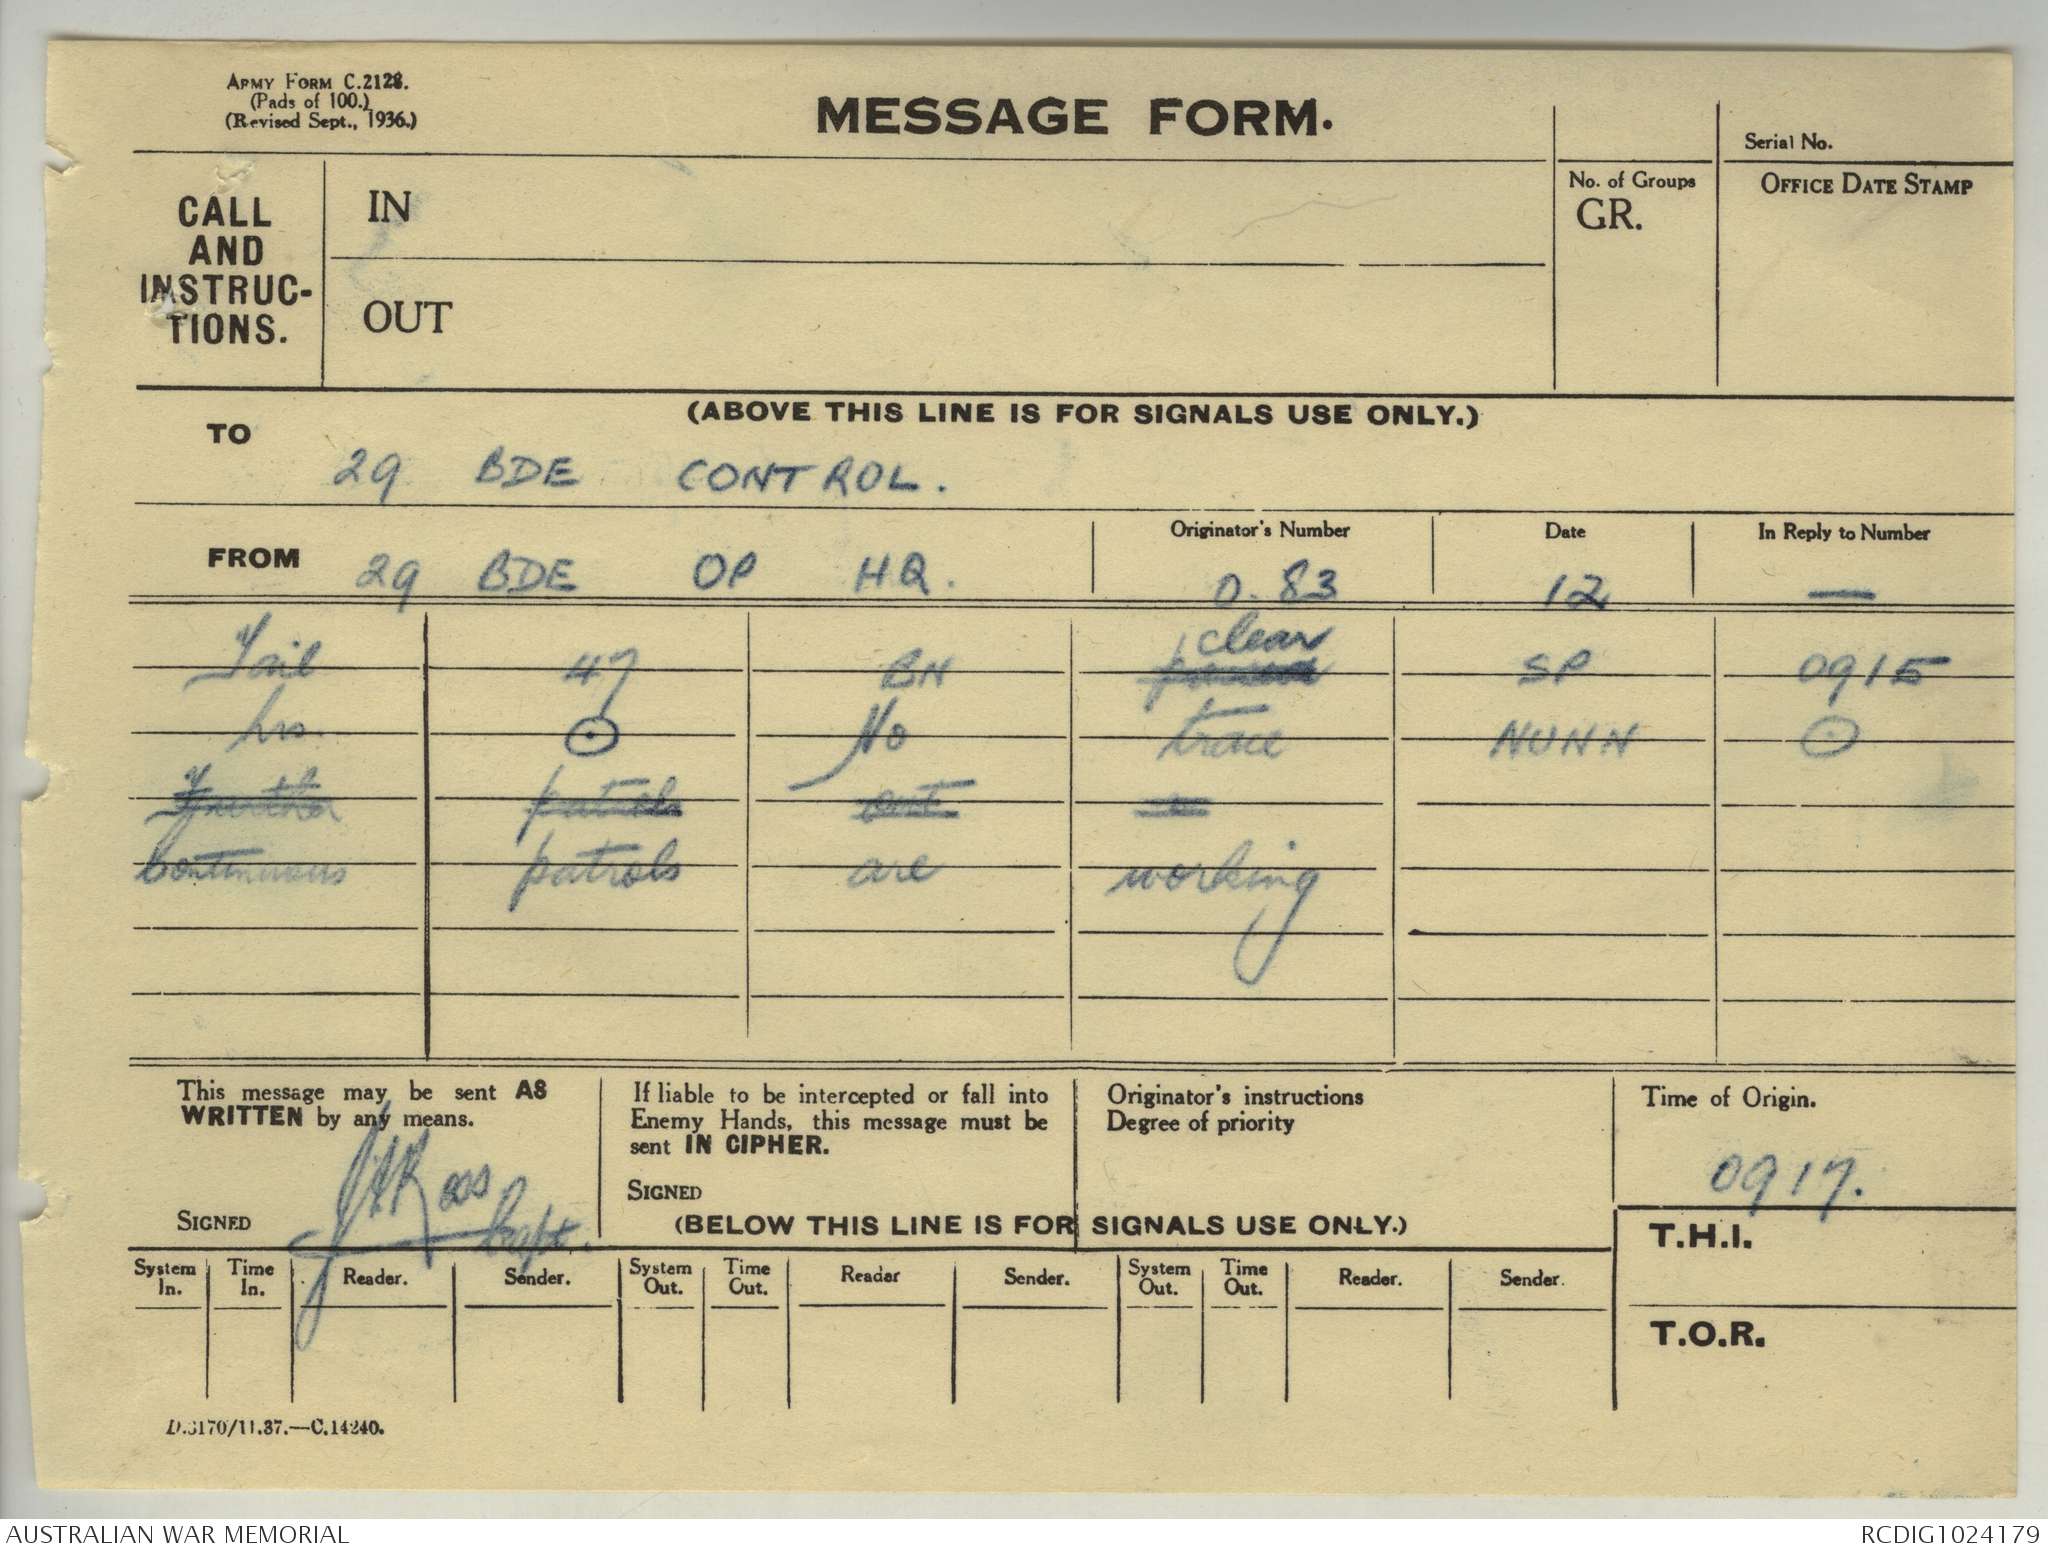 ARMY FORM C.2128.
(Pads of 100.)
(Revised Sept., 1936.)
MESSAGE FORM.
Serial No.
CALL AND INSTRUC-TIONS.
IN
OUT
No. of Groups
GR.
OFFICE DATE STAMP
(ABOVE THIS LINE IS FOR SIGNALS USE ONLY.)
TO
29 BDE CONTROL.
FROM 29 BDE OP HQ.
Originator's Number
0.83
Date
12
In Reply to Number
—
clear
Tail 47 BN SP 0915
hrs. ⊙ No trace NUNN ⊙
Further patrols out
Continuous patrols are working
This message may be sent AS
WRITTEN by any means.
SIGNED
Capt.
If liable to be intercepted or fall into
Enemy Hands, this message must be
sent IN CIPHER.
SIGNED
Originator's instructions
Degree of priority
Time of Origin.
0917.
(BELOW THIS LINE IS FOR SIGNALS USE ONLY.)
T.H.I.
T.O.R.
System In. Time In. Reader. Sender. System Out. Time Out. Reader Sender. System Out. Time Out. Reader. Sender.
D.6170/11.37.—C.14240.
AUSTRALIAN WAR MEMORIAL
RCDIG1024179